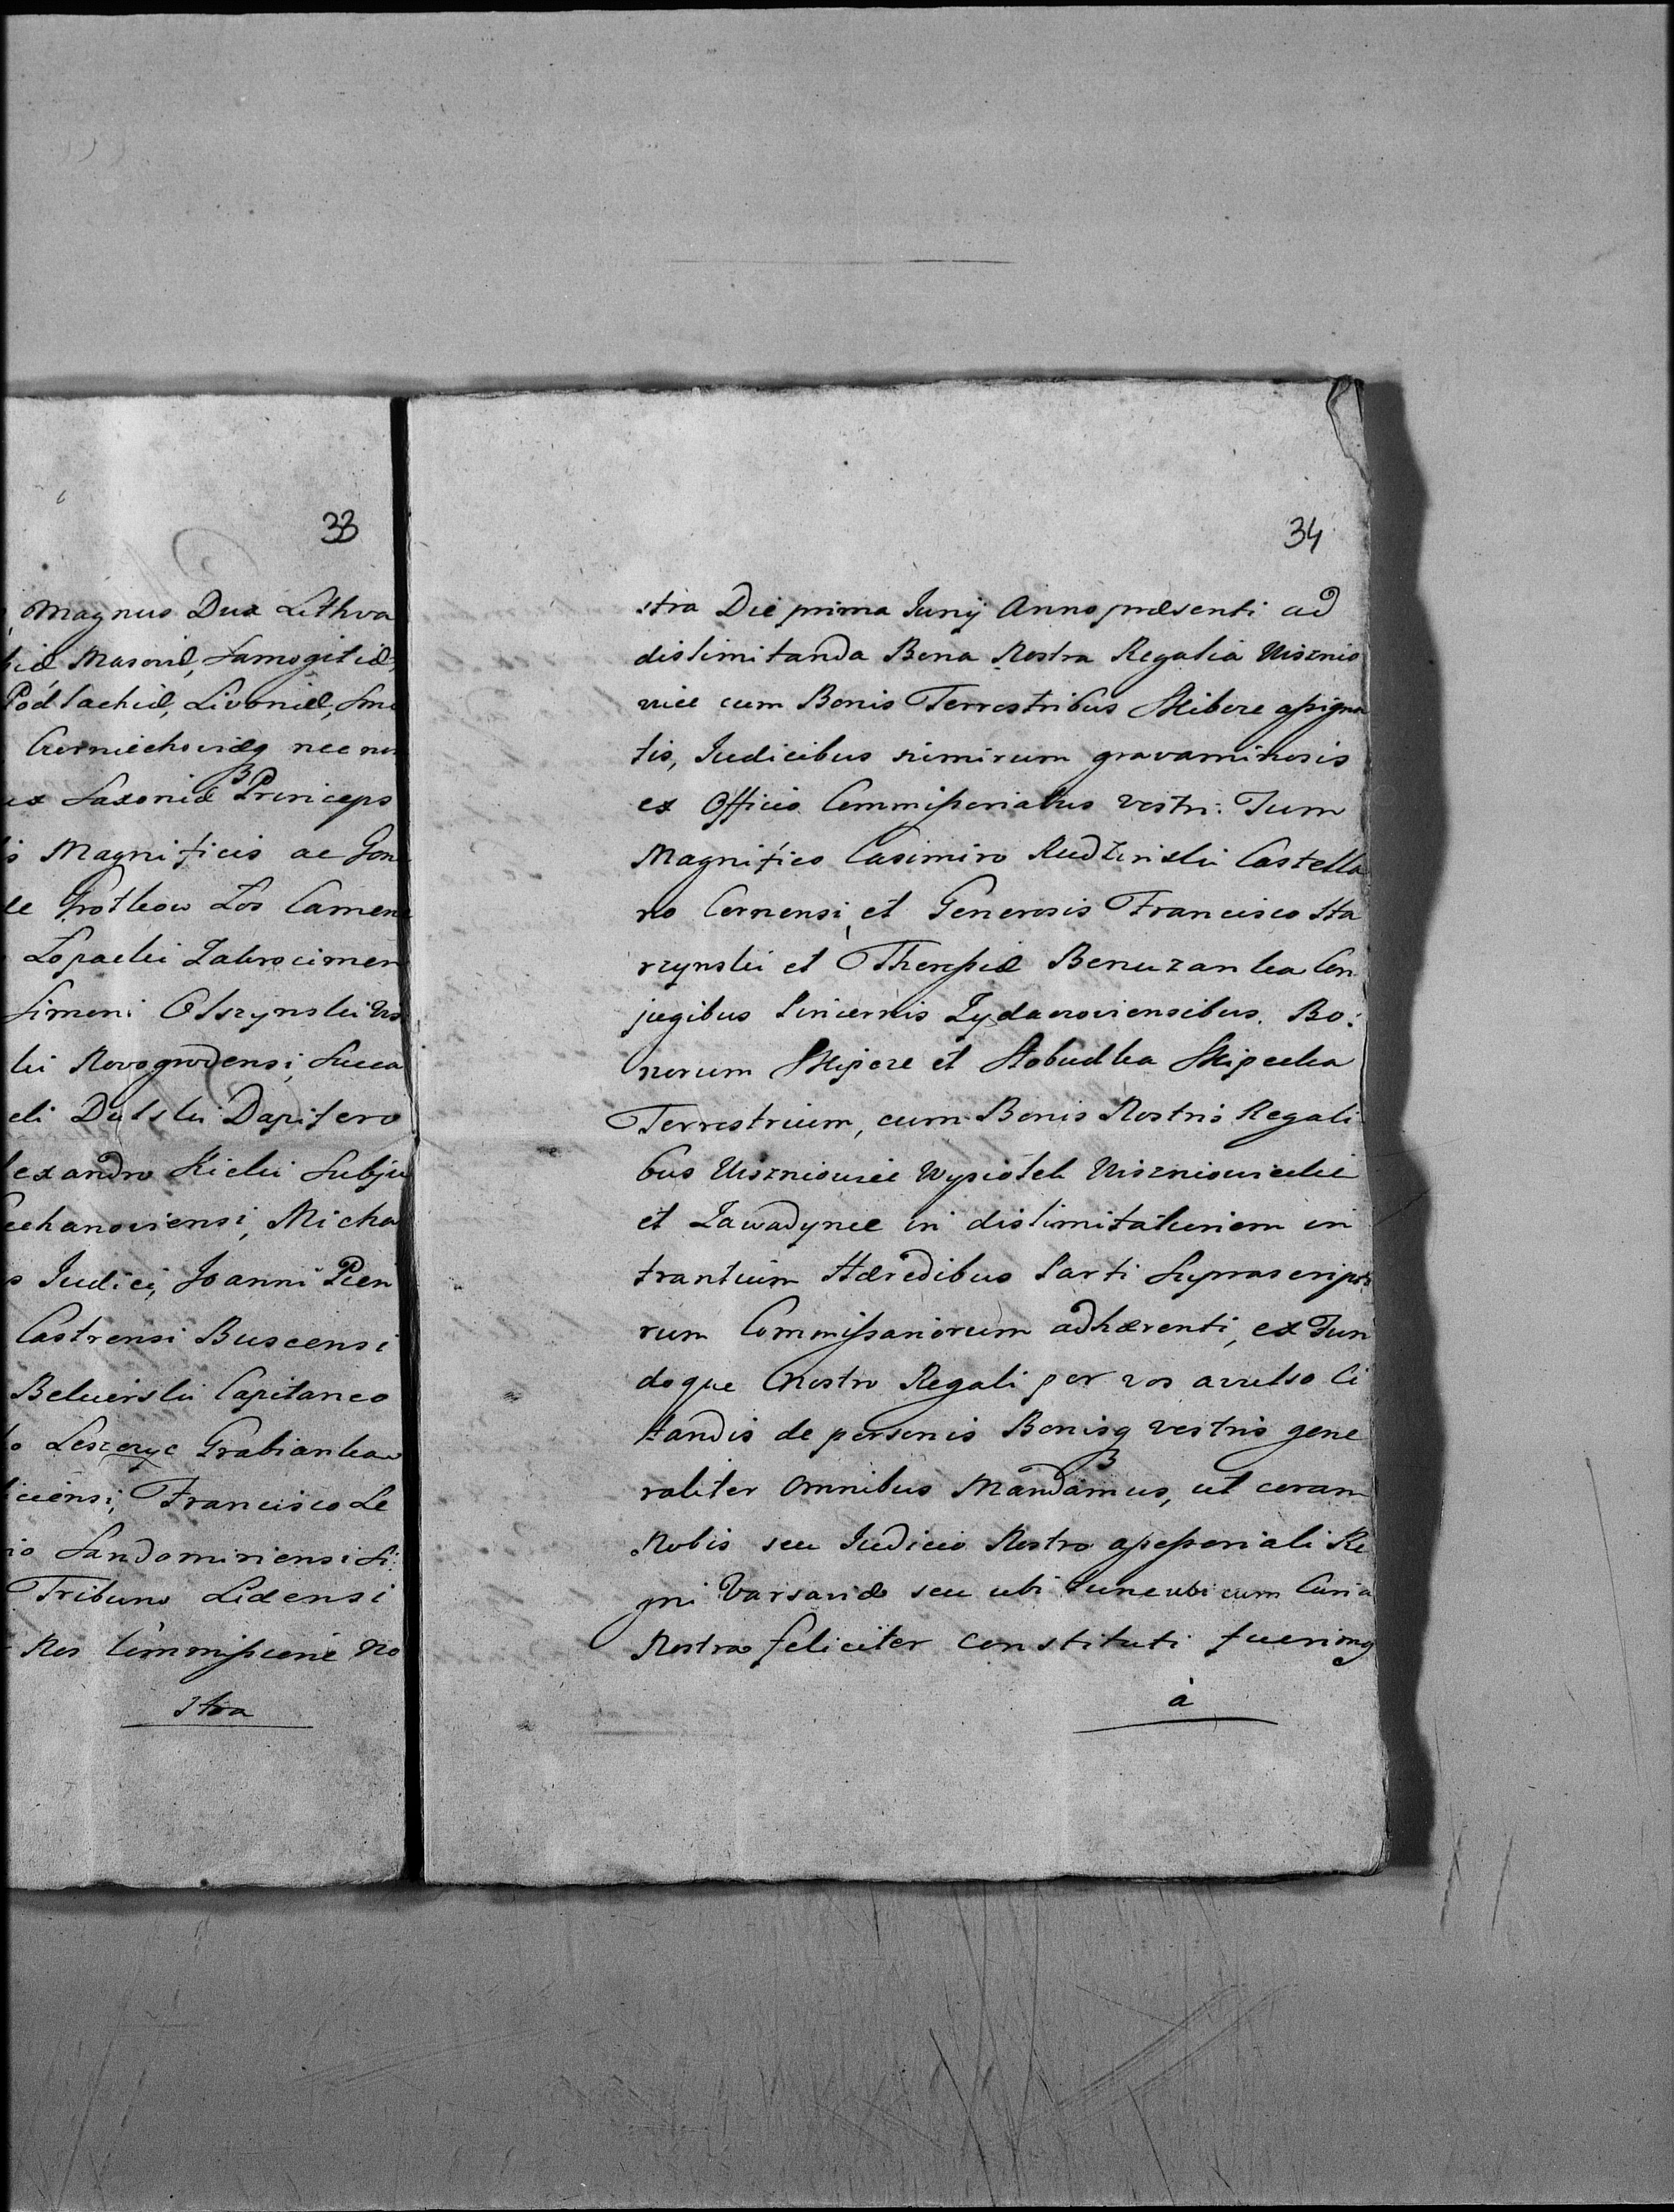 33
Magnus Dux Lithva
Masović, Samogitić,
Podlachić, Livonić, Smo
Czerniechovićq nec non
Saxonić Princeps
Magnificis ac Gen
Łoś Camene
Łopacki Zakrocimen
Simoni Olszynski
ki Novogrodensi, Succa
Dulski Dapifero
lexandro Kicki Subju
echanoviensi, Micha
Iudici, Joanni Pien
Castrensi Buscensi
Capitaneo
Leszczyc Grabianka
Francisco Le
io Sandomiriensi Si:
Tribuno Lidensi
Nos Commissione No
stra
34
stra Die prima Junij Anno præsenti ad
dislimitanda Bona Nostra Regalia Wisznio
wiec cum Bonis Terrestribus Skibcze assigna
tis, Iudicibus nimirum gravaminosis
ex Officio Commissoriatus vestri: Tum
Magnifico Casimiro Rudzinski Castella
no Cernensi, et Generosis Francisco Sta
rzynski et Theressiæ Con
jugibus Pincernis Zydaczoviensibus. Bo:
norum Skipcze et Slobudka Skipecka
Terrestrium, cum Bonis Nostris Regali
bus Wiszniowiec Wysiolek Wiszniowiecki
et Zawadynce in dislimitationem in
trantium Hæredibus Parti Suprascripto
rum Commissariorum adhærenti, ex Fun
doque Nostro Regali per vos avulso Ci
tandis de personis Bonisq vestris gene
raliter omnibus Mandamus, ut coram
Nobis seu Iudicio Nostro assessoriali Re
gni Varsaviæ seu ubi tunc ubi cum Curia
Nostra feliciter constituti fuerimq
à